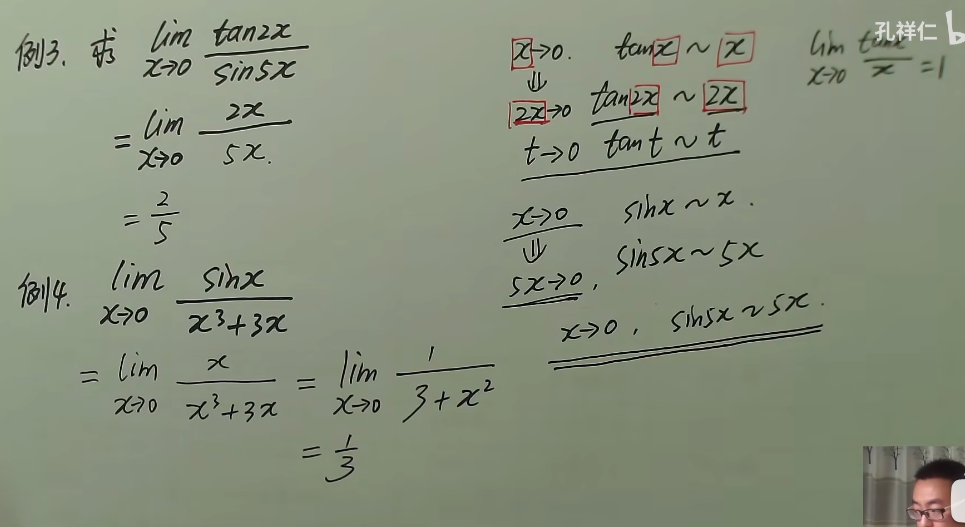 例3. 求 lim x→0 tan2x / sin5x
= lim x→0 2x / 5x.
= 2/5
例4. lim x→0 sinx / x³+3x
= lim x→0 x / x³+3x = lim x→0 1 / 3+x²
= 1/3
x→0. tanx ~ x
⇓
2x→0 tan2x ~ 2x
t→0 tant ~ t
x→0 sinx ~ x.
⇓
5x→0, sin5x ~ 5x
x→0, sin5x ~ 5x.
孔祥仁 b
lim x→0 tanx / x = 1